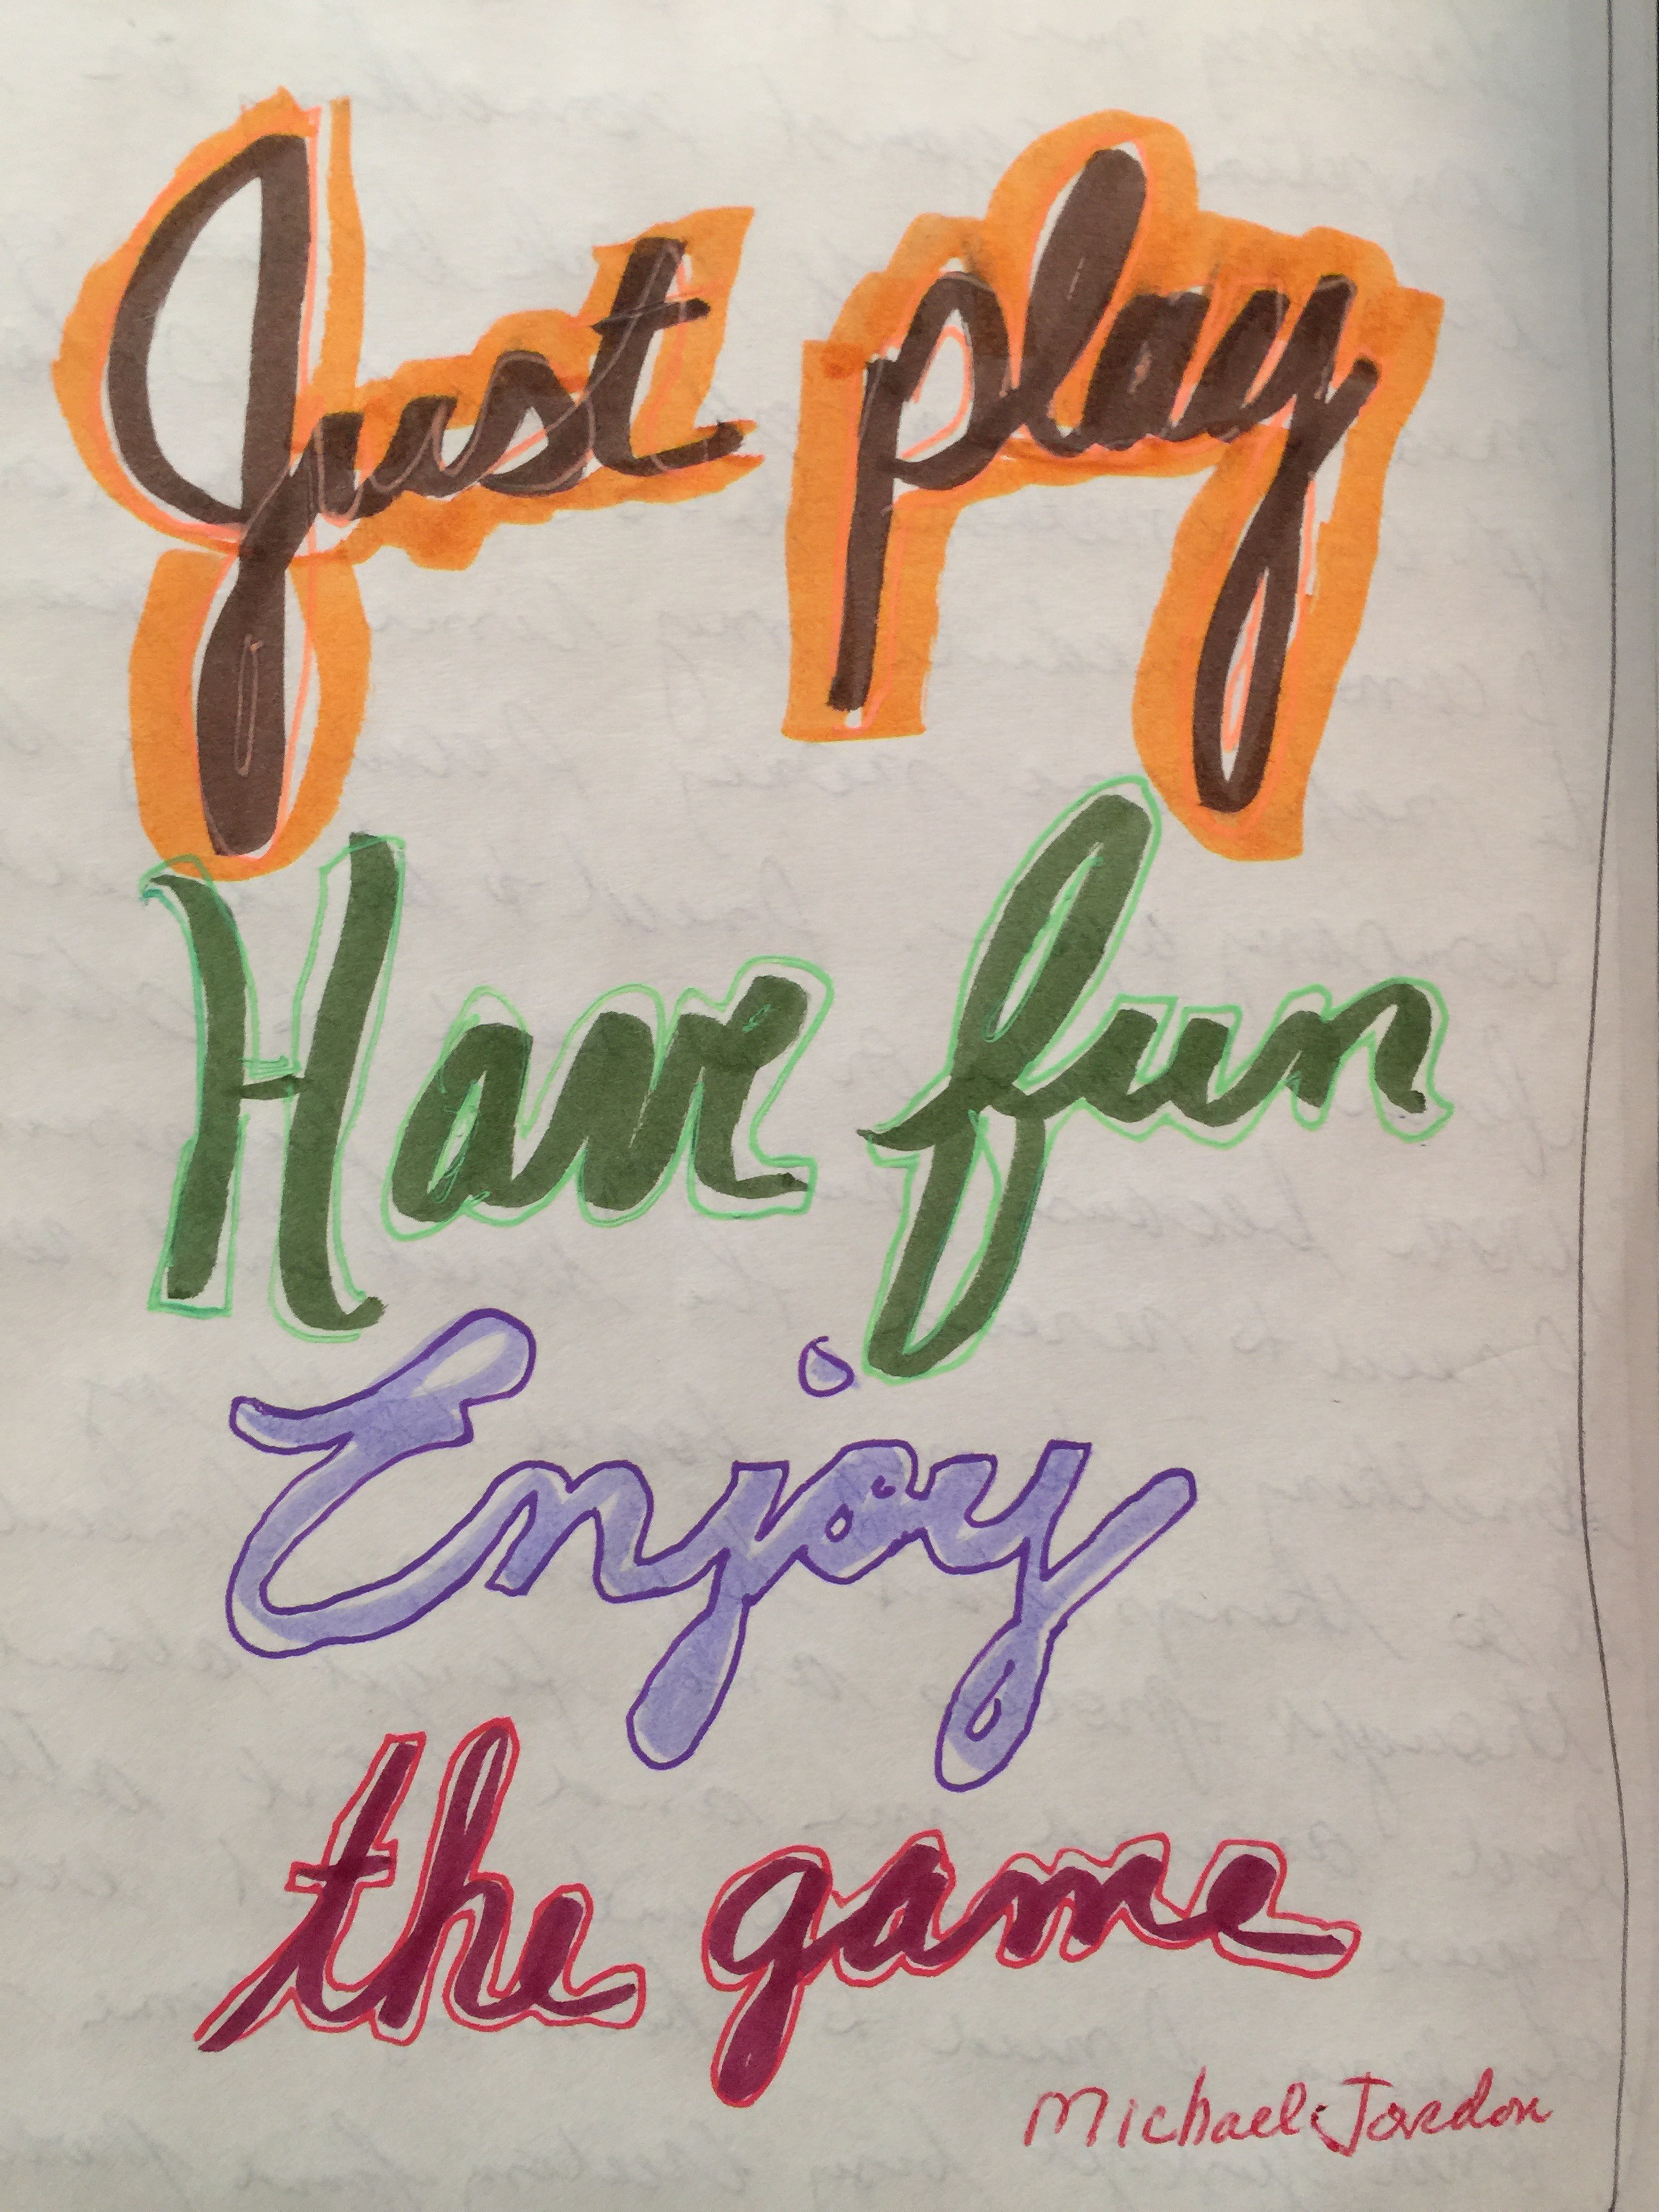 Just play
Have fun
Enjoy
the game
Michael Jordon